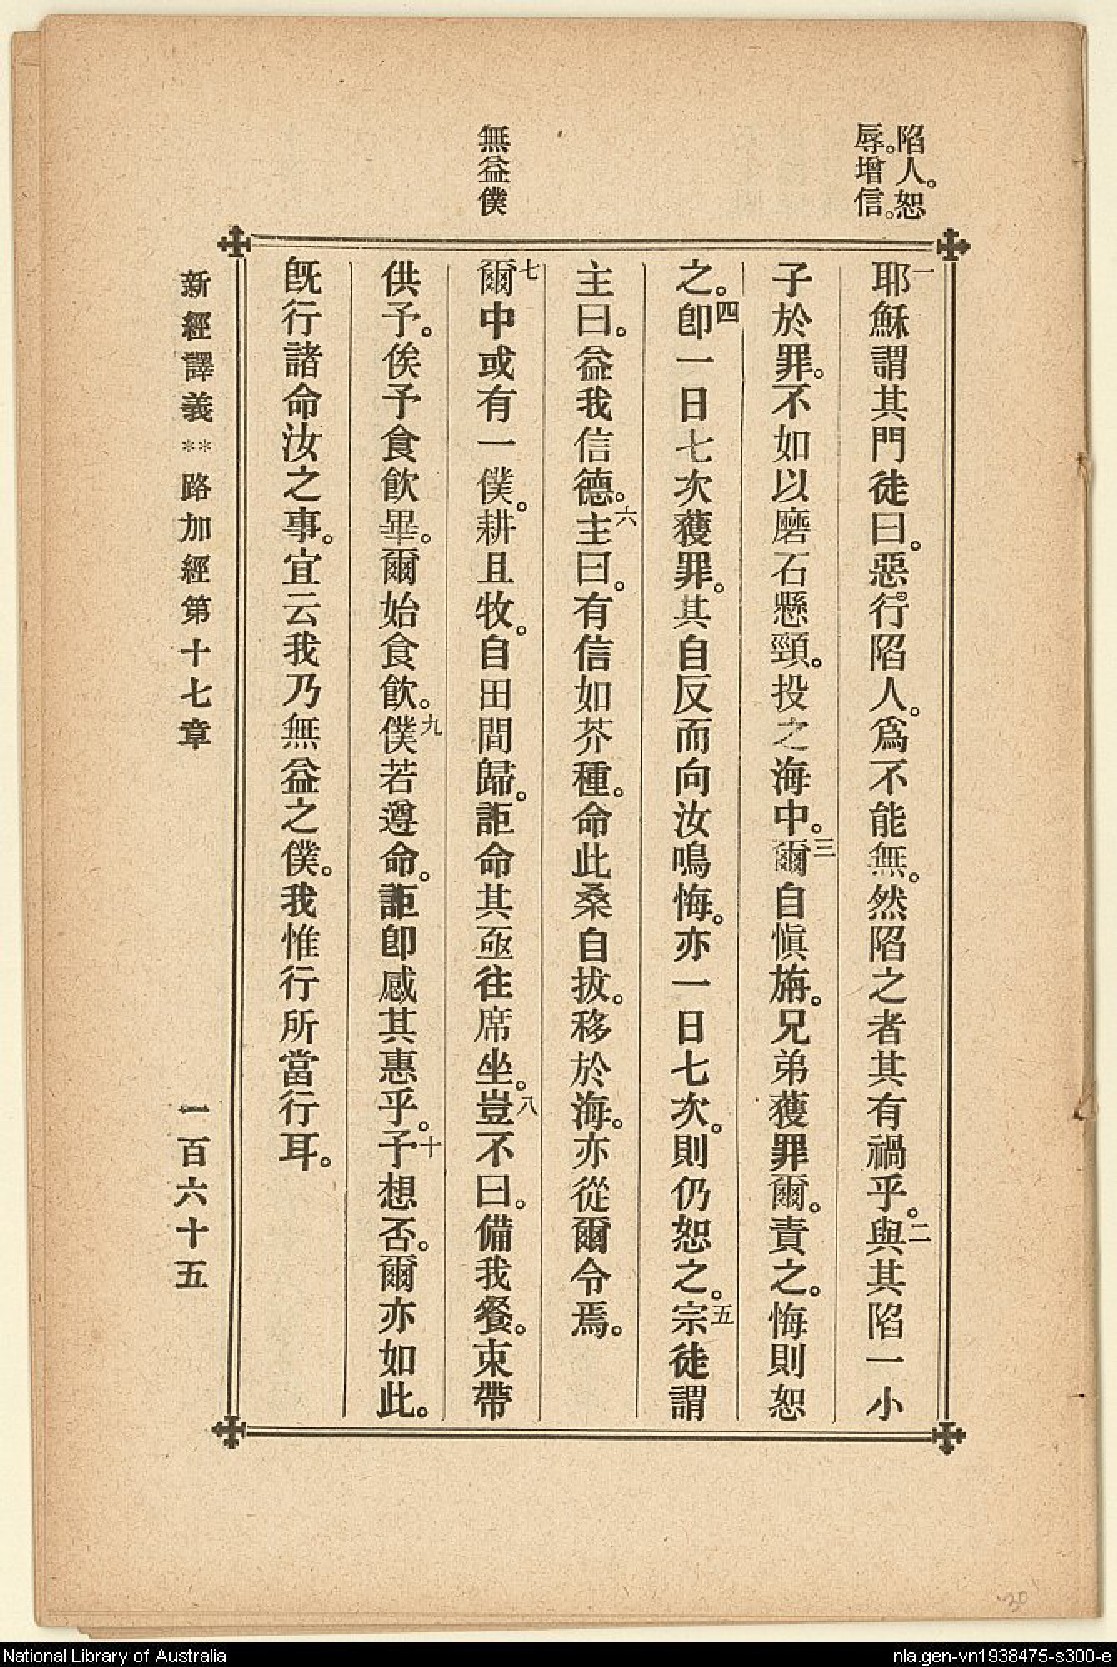 陷人。恕
辱。增信。
無益僕
一耶穌謂其門徒曰。惡行。陷人。爲不能無。然陷之者其有禍乎。二與其陷一小
子於罪。不如以磨石懸頸。投之海中。三爾自愼旃。兄弟獲罪爾。責之。悔則恕
之。四卽一日七次獲罪。其自反而向汝鳴悔。亦一日七次。則仍恕之。五宗徒謂
主曰。益我信德。六主曰。有信如芥種。命此桑自拔。移於海。亦從爾令焉。
七爾中或有一僕。耕且牧。自田間歸。詎命其亟往席坐。八豈不曰。備我餐。束帶
供予。俟予食飮畢。爾始食飮。九僕若遵命。詎卽感其惠乎。十予想否。爾亦如此。
旣行諸命汝之事。宜云我乃無益之僕。我惟行所當行耳。
新經譯義**路加經第十七章 一百六十五
30
National Library of Australia
nla.gen-vn1938475-s300-e